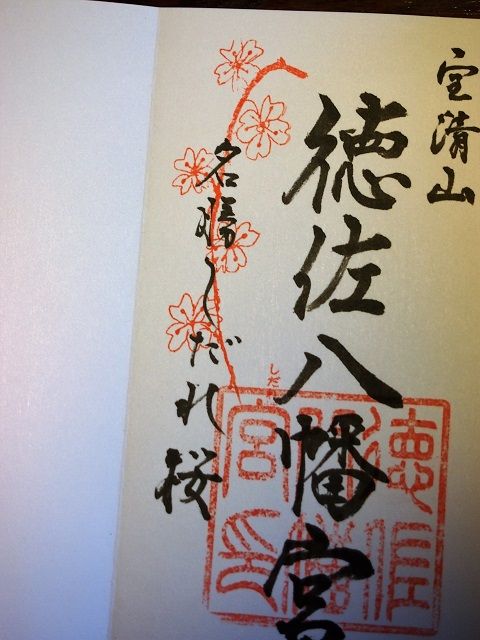 宝清山
徳佐八幡宮
名勝しだれ桜
しだ
徳佐
八幡
宮印